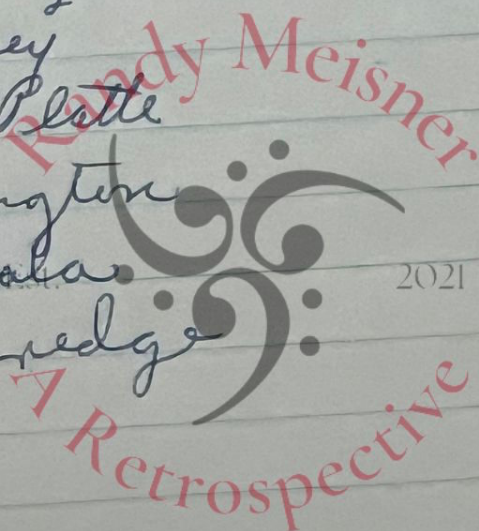 ey
Platte
ngton
ala
edge
Randy Meisner
2021
A Retrospective